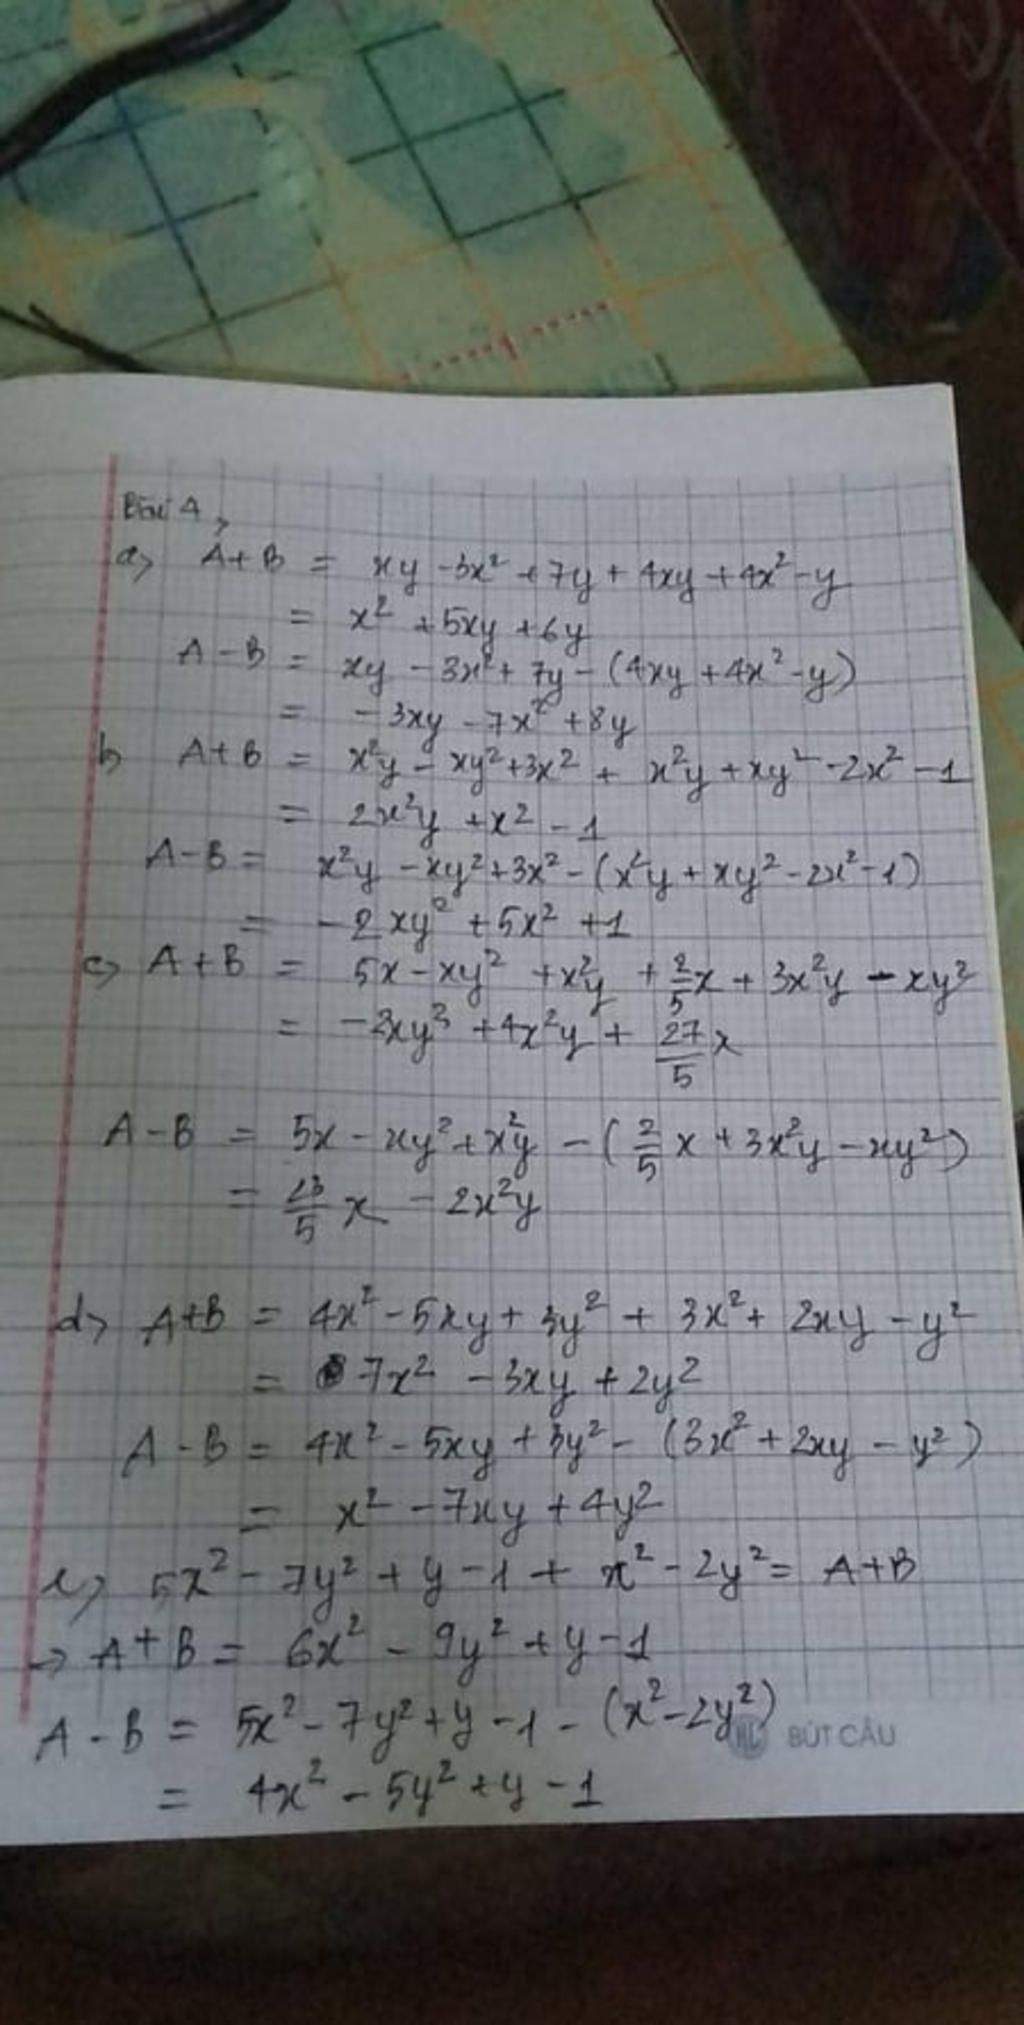 Bài 4,
a) A+B = xy - 3x² + 7y + 4xy + 4x² - y
= x² + 5xy + 6y
A - B = xy - 3x² + 7y - (4xy + 4x² - y)
= - 3xy - 7x² + 8y
b) A+B = x²y - xy² + 3x² + x²y + xy² - 2x² - 1
= 2x²y + x² - 1
A-B = x²y - xy² + 3x² - (x²y + xy² - 2x² - 1)
= - 2xy² + 5x² + 1
c) A+B = 5x - xy² + x²y + 2/5 x + 3x²y - xy²
= - 2xy² + 4x²y + 27/5 x
A - B = 5x - xy² + x²y - (2/5 x + 3x²y - xy²)
= 23/5 x - 2x²y
d) A+B = 4x² - 5xy + 3y² + 3x² + 2xy - y²
= 7x² - 3xy + 2y²
A - B = 4x² - 5xy + 3y² - (3x² + 2xy - y²)
= x² - 7xy + 4y²
e) 5x² - 7y² + y - 1 + x² - 2y² = A+B
→ A + B = 6x² - 9y² + y - 1
A - B = 5x² - 7y² + y - 1 - (x² - 2y²)
= 4x² - 5y² + y - 1
HL BÚT CÂU